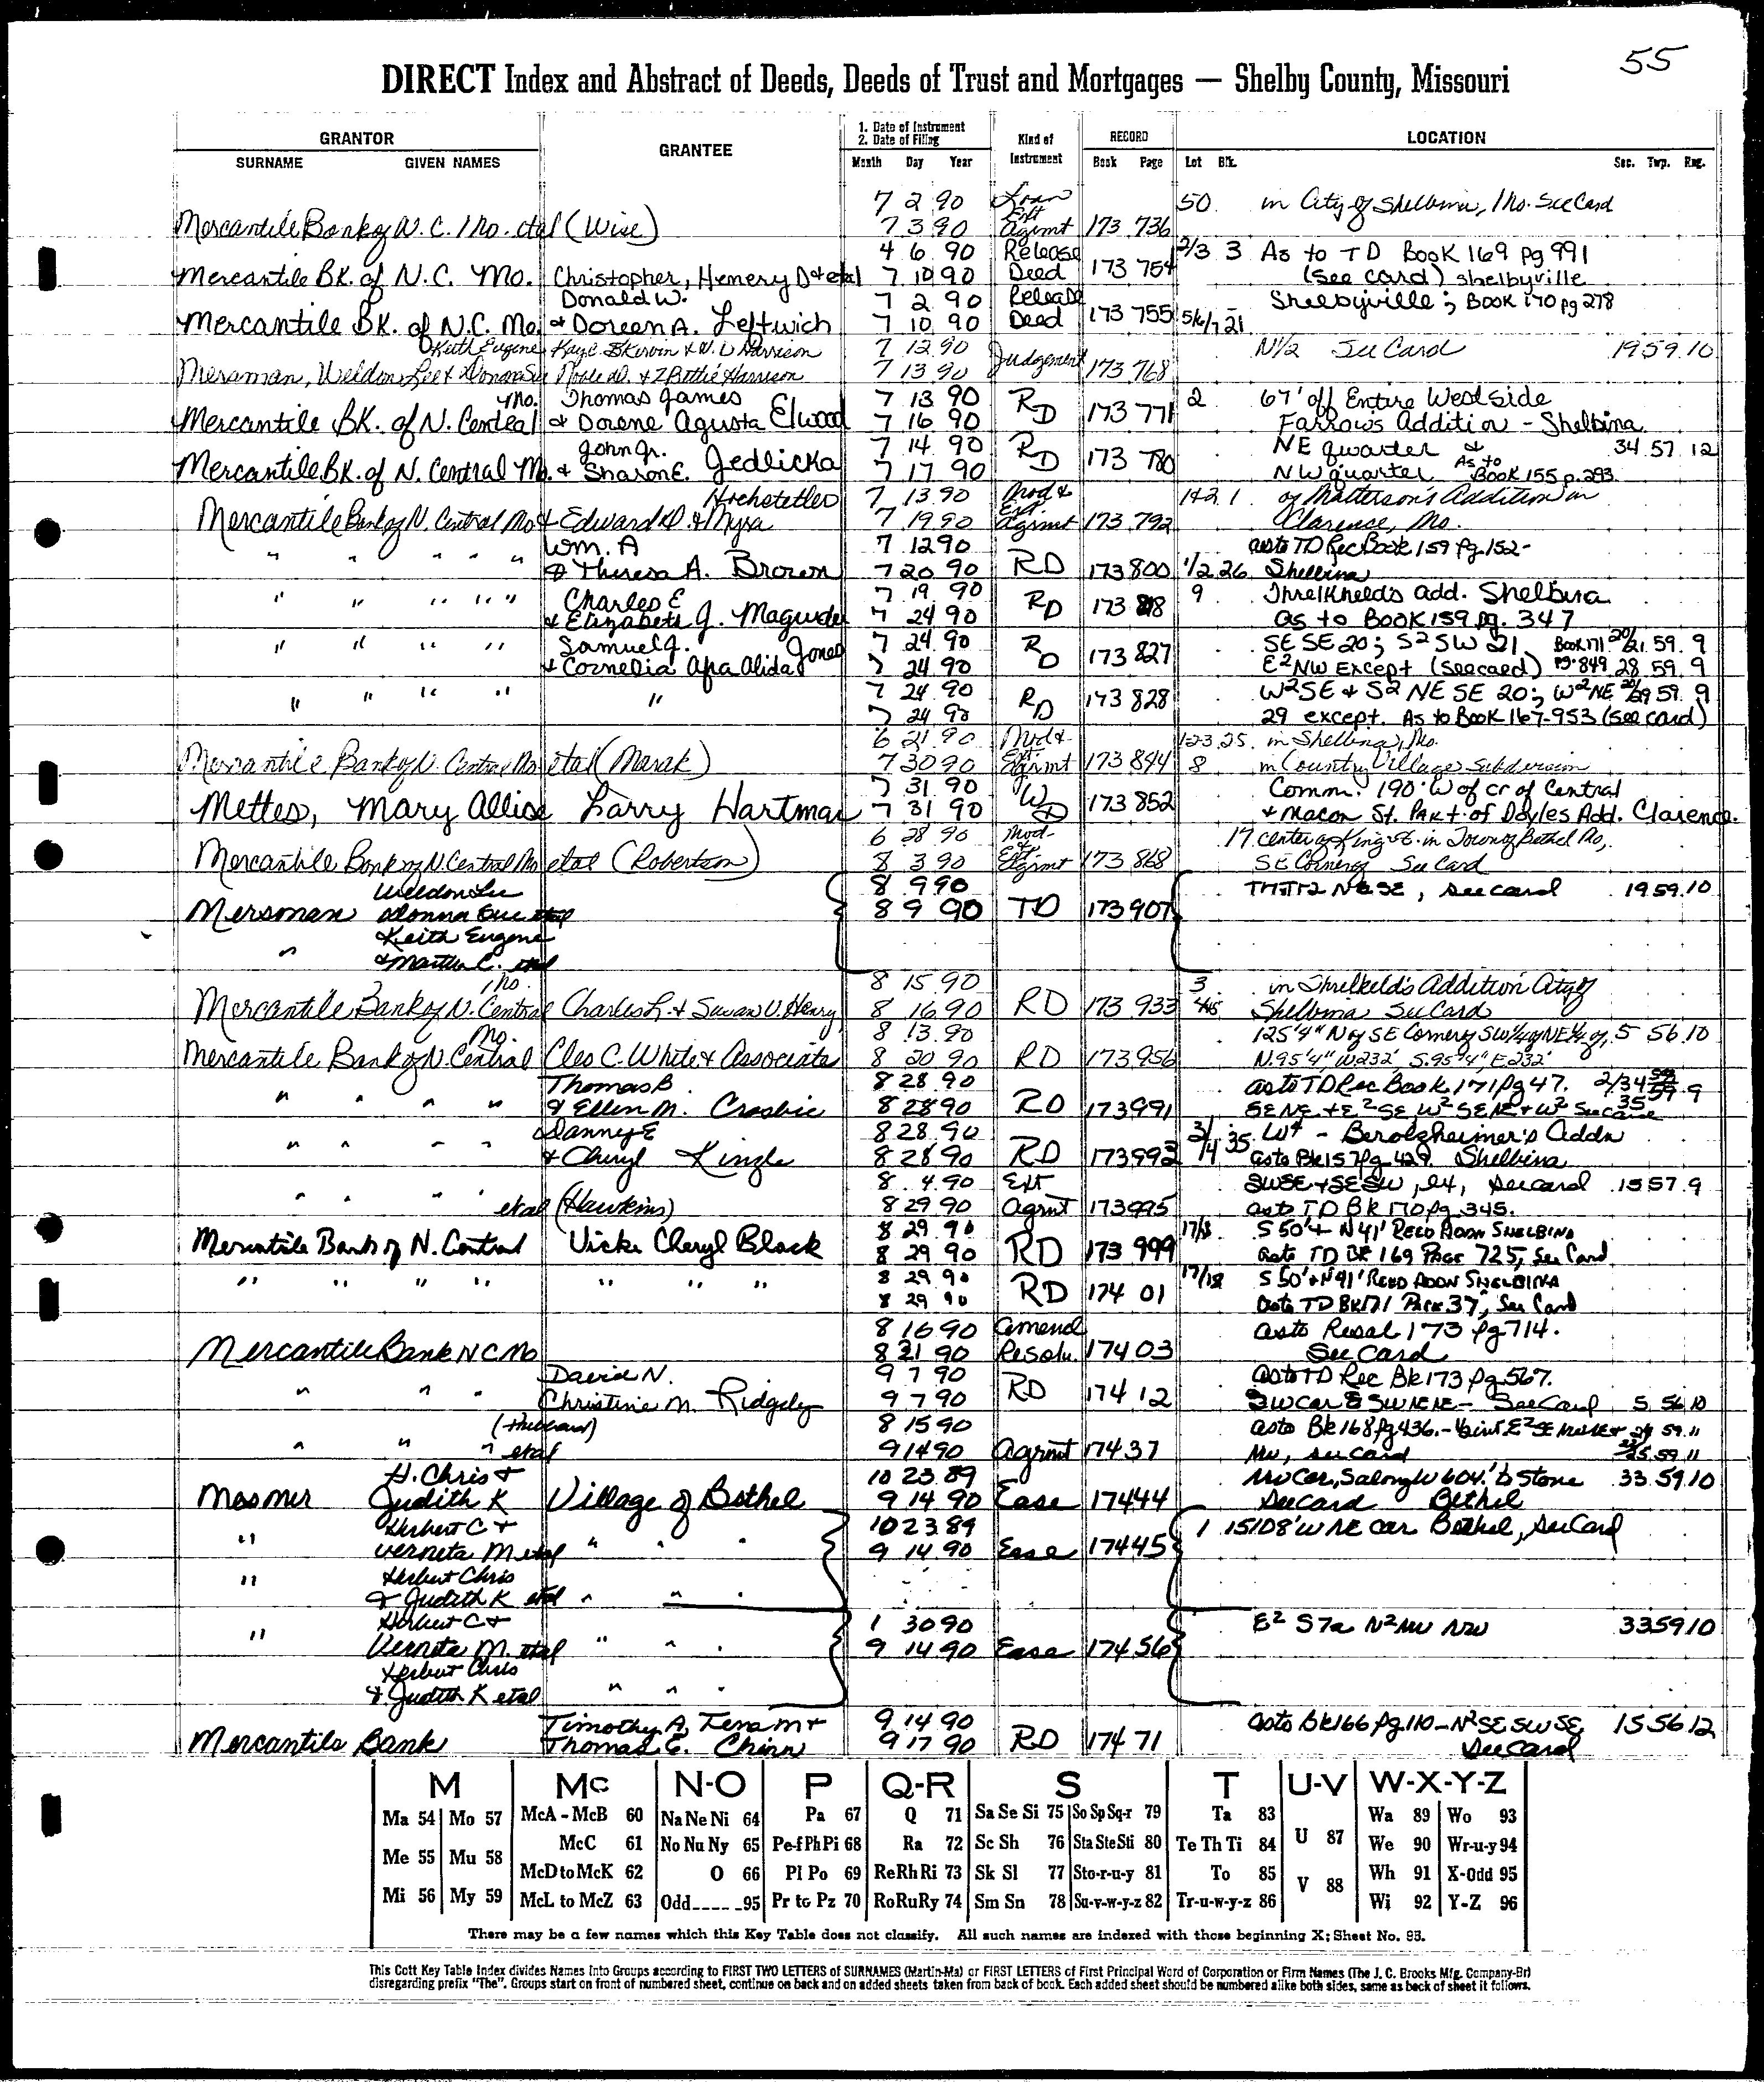 55
DIRECT Index and Abstract of Deeds, Deeds of Trust and Mortgages — Shelby County, Missouri
GRANTOR GRANTEE 1. Date of Instrument 2. Date of Filing Kind of Instrument RECORD LOCATION
SURNAME GIVEN NAMES Month Day Year Book Page Lot Blk. Sec. Twp. Rng.
7 2 90 Loan 50 in City of Shelbina, Mo. See Card
Mercantile Bank of N.C. Mo. etal (Wise) 7 3 90 Ext Agrmt 173 736
4 6 90 Release 2/3 3 As to TD Book 169 pg 991
Mercantile BK. of N.C. Mo. Christopher, Hemery D & etal 7 10 90 Deed 173 754 (see card) Shelbyville
Donald W. 7 2 90 Release Shelbyville; Book 170 pg 278
Mercantile BK. of N.C. Mo. & Doreen A. Leftwich 7 10 90 Deed 173 755 5/6/7 21
Keith Eugene Kay C. Skirvin & W. D Harrison 7 12 90 Judgement N 1/2 See Card 19 59 10
Mersman, Weldon Lee & Donna Sue 7 13 90 173 768
Mo. Thomas James 7 13 90 RD 2 67' off Entire West side
Mercantile BK. of N. Central & Dorene Agusta Elwood 7 16 90 173 771 Farrows Addition - Shelbina
John Jr. 7 14 90 RD NE quarter & 34 57 12
Mercantile BK. of N. Central Mo. & Sharon E. Jedlicka 7 17 90 173 780 NW quarter As to Book 155 p. 293
Hochstetler 7 13 90 Mod & 1&2 1 of Matterson's Addition in
Mercantile Bank of N. Central Mo & Edward D. & Nysa 7 19 90 Ext. Agrmt 173 792 Clarence, Mo.
Wm. A 7 12 90 as to TD Rec Book 159 Pg. 152-
" " " " " & Theresa A. Brown 7 20 90 RD 173 800 1/2 26 Shelbina
Charles E 7 19 90 9 Threlkheld's add. Shelbina
" " " " " & Elizabeth J. Magruder 7 24 90 RD 173 818 as to BOOK 159 pg. 347
Samuel J. 7 24 90 SE SE 20; S2 SW 21 Book 171 20/21 59 9
" " " " & Cornelia Apa Alida Jones 7 24 90 RD 173 827 E2 NW Except (see card) pg. 849 28 59 9
7 24 90 W2SE & S2 NE SE 20; W2NE 20/29 59 9
" " " " " 7 24 90 RD 173 828 29 except. As to Book 167-953 (see card)
6 21 90 Mod & 123 25 in Shelbina, Mo.
Mercantile Bank of N. Central Mo etal (Marak) 7 30 90 Ext. Agrmt 173 844 8 in Country Village Subdivision
7 31 90 Comm. 190' W of cr of Central
Mettes, Mary Allise Larry Hartman 7 31 90 WD 173 852 & Macon St. Part of Doyles Add. Clarence.
6 28 90 Mod- 17 center of King St. in Town of Bethel Mo,
Mercantile Bank of N. Central Mo etal (Robertson) 8 3 90 Ext Agrmt 173 868 SE Corner of See Card
Weldon Lee 8 9 90 NE SE, see card 19 59 10
Mersman Donna Sue etal 8 9 90 TD 173 907
Keith Eugene
" & Martha C. etal
Mo. 8 15 90 3 in Threlkeld's Addition City of
Mercantile Bank of N. Central Charles L. & Susan V. Henry 8 16 90 RD 173 933 4&5 Shelbina See Card
Mo. 8 13 90 125'4" N of SE Corner of SW 1/4 of NE 1/4 of, 5 56 10
Mercantile Bank of N. Central Cleo C. White & Associates 8 20 90 RD 173 956 N. 95'4" W 232', S. 95'4", E 232'
Thomas B 8 28 90 as to TD Rec Book 171 Pg 47. 2/34 59 9
" " " " & Ellen M. Crosbie 8 28 90 RD 173 991 SE NE & E2 SE, W2 SE NE & W2 See card 35
Danny E 8 28 90 3/ W4 - Berolzheimer's Addn
" " " " & Cheryl Kinzle 8 28 90 RD 173 993 /4 35 as to Bk 157 Pg 429. Shelbina
8 4 90 Ext SWSE & SESW, 24, see card 15 57 9
" " " " etal (Hawkins) 8 29 90 Agrmt 173 995 as to TD Bk 170 pg 345.
8 29 90 17/18 S 50' & N 41' REED ADDN SHELBINA
Mercantile Bank of N. Central Vicki Cheryl Black 8 29 90 RD 173 999 as to TD BK 169 PAGE 725, See Card
8 29 90 17/18 S 50' & N 91' REED ADDN SHELBINA
" " " " " " " 8 29 90 RD 174 01 as to TD BK 171 PAGE 37, See Card
8 16 90 Amend as to Resol 173 pg 714.
Mercantile Bank N C Mo 8 21 90 Resolu. 174 03 See Card
David N. 9 7 90 as to TD Rec Bk 173 Pg 567.
" " " Christine M. Ridgely 9 7 90 RD 174 12 SW Cor SWNENE- See Card 5 56 10
(Hubbard) 8 15 90 as to Bk 168 Pg 436. 24 59 11
" " " etal 9 14 90 Agrmt 174 37 NW, see card 25 59 11
H. Chris & 10 23 89 NW Cor, S along W 604.' to Stone 33 59 10
Mosmer Judith K Village of Bethel 9 14 90 Ease 174 44 See card Bethel
Herbert C & 10 23 89 1 15/D8' W NE cor Bethel, See Card
" Verneta M etal " " " 9 14 90 Ease 174 45
Herbert Chris
" & Judith K etal " " "
Herbert C & 1 30 90 E2 S7a N2 NW NW 33 59 10
" Verneta M. etal " " " 9 14 90 Ease 174 56
Herbert Chris
& Judith K etal " " "
Timothy A, Tena M & 9 14 90 as to Bk 166 Pg 110 - N2 SE SW SE, 15 56 12
Mercantile Bank Thomas E. Chinn 9 17 90 RD 174 71 See Card
M Mc N-O P Q-R S T U-V W-X-Y-Z
Ma 54 Mo 57 McA - McB 60 Na Ne Ni 64 Pa 67 Q 71 Sa Se Si 75 So Sp Sq-r 79 Ta 83 U 87 Wa 89 Wo 93
Me 55 Mu 58 McC 61 No Nu Ny 65 Pe-f Ph Pi 68 Ra 72 Sc Sh 76 Sta Ste Sti 80 Te Th Ti 84 We 90 Wr-u-y 94
McD to McK 62 O 66 Pl Po 69 Re Rh Ri 73 Sk Sl 77 Sto-r-u-y 81 To 85 V 88 Wh 91 X-Odd 95
Mi 56 My 59 McL to McZ 63 Odd 95 Pr to Pz 70 Ro Ru Ry 74 Sm Sn 78 Su-v-w-y-z 82 Tr-u-w-y-z 86 Wi 92 Y-Z 96
There may be a few names which this Key Table does not classify. All such names are indexed with those beginning X; Sheet No. 95.
This Cott Key Table Index divides Names Into Groups according to FIRST TWO LETTERS of SURNAMES (Martin-Ma) or FIRST LETTERS of First Principal Word of Corporation or Firm Names (The J. C. Brooks Mfg. Company-Br)
disregarding prefix "The". Groups start on front of numbered sheet, continue on back and on added sheets taken from back of book. Each added sheet should be numbered alike both sides, same as back of sheet it follows.